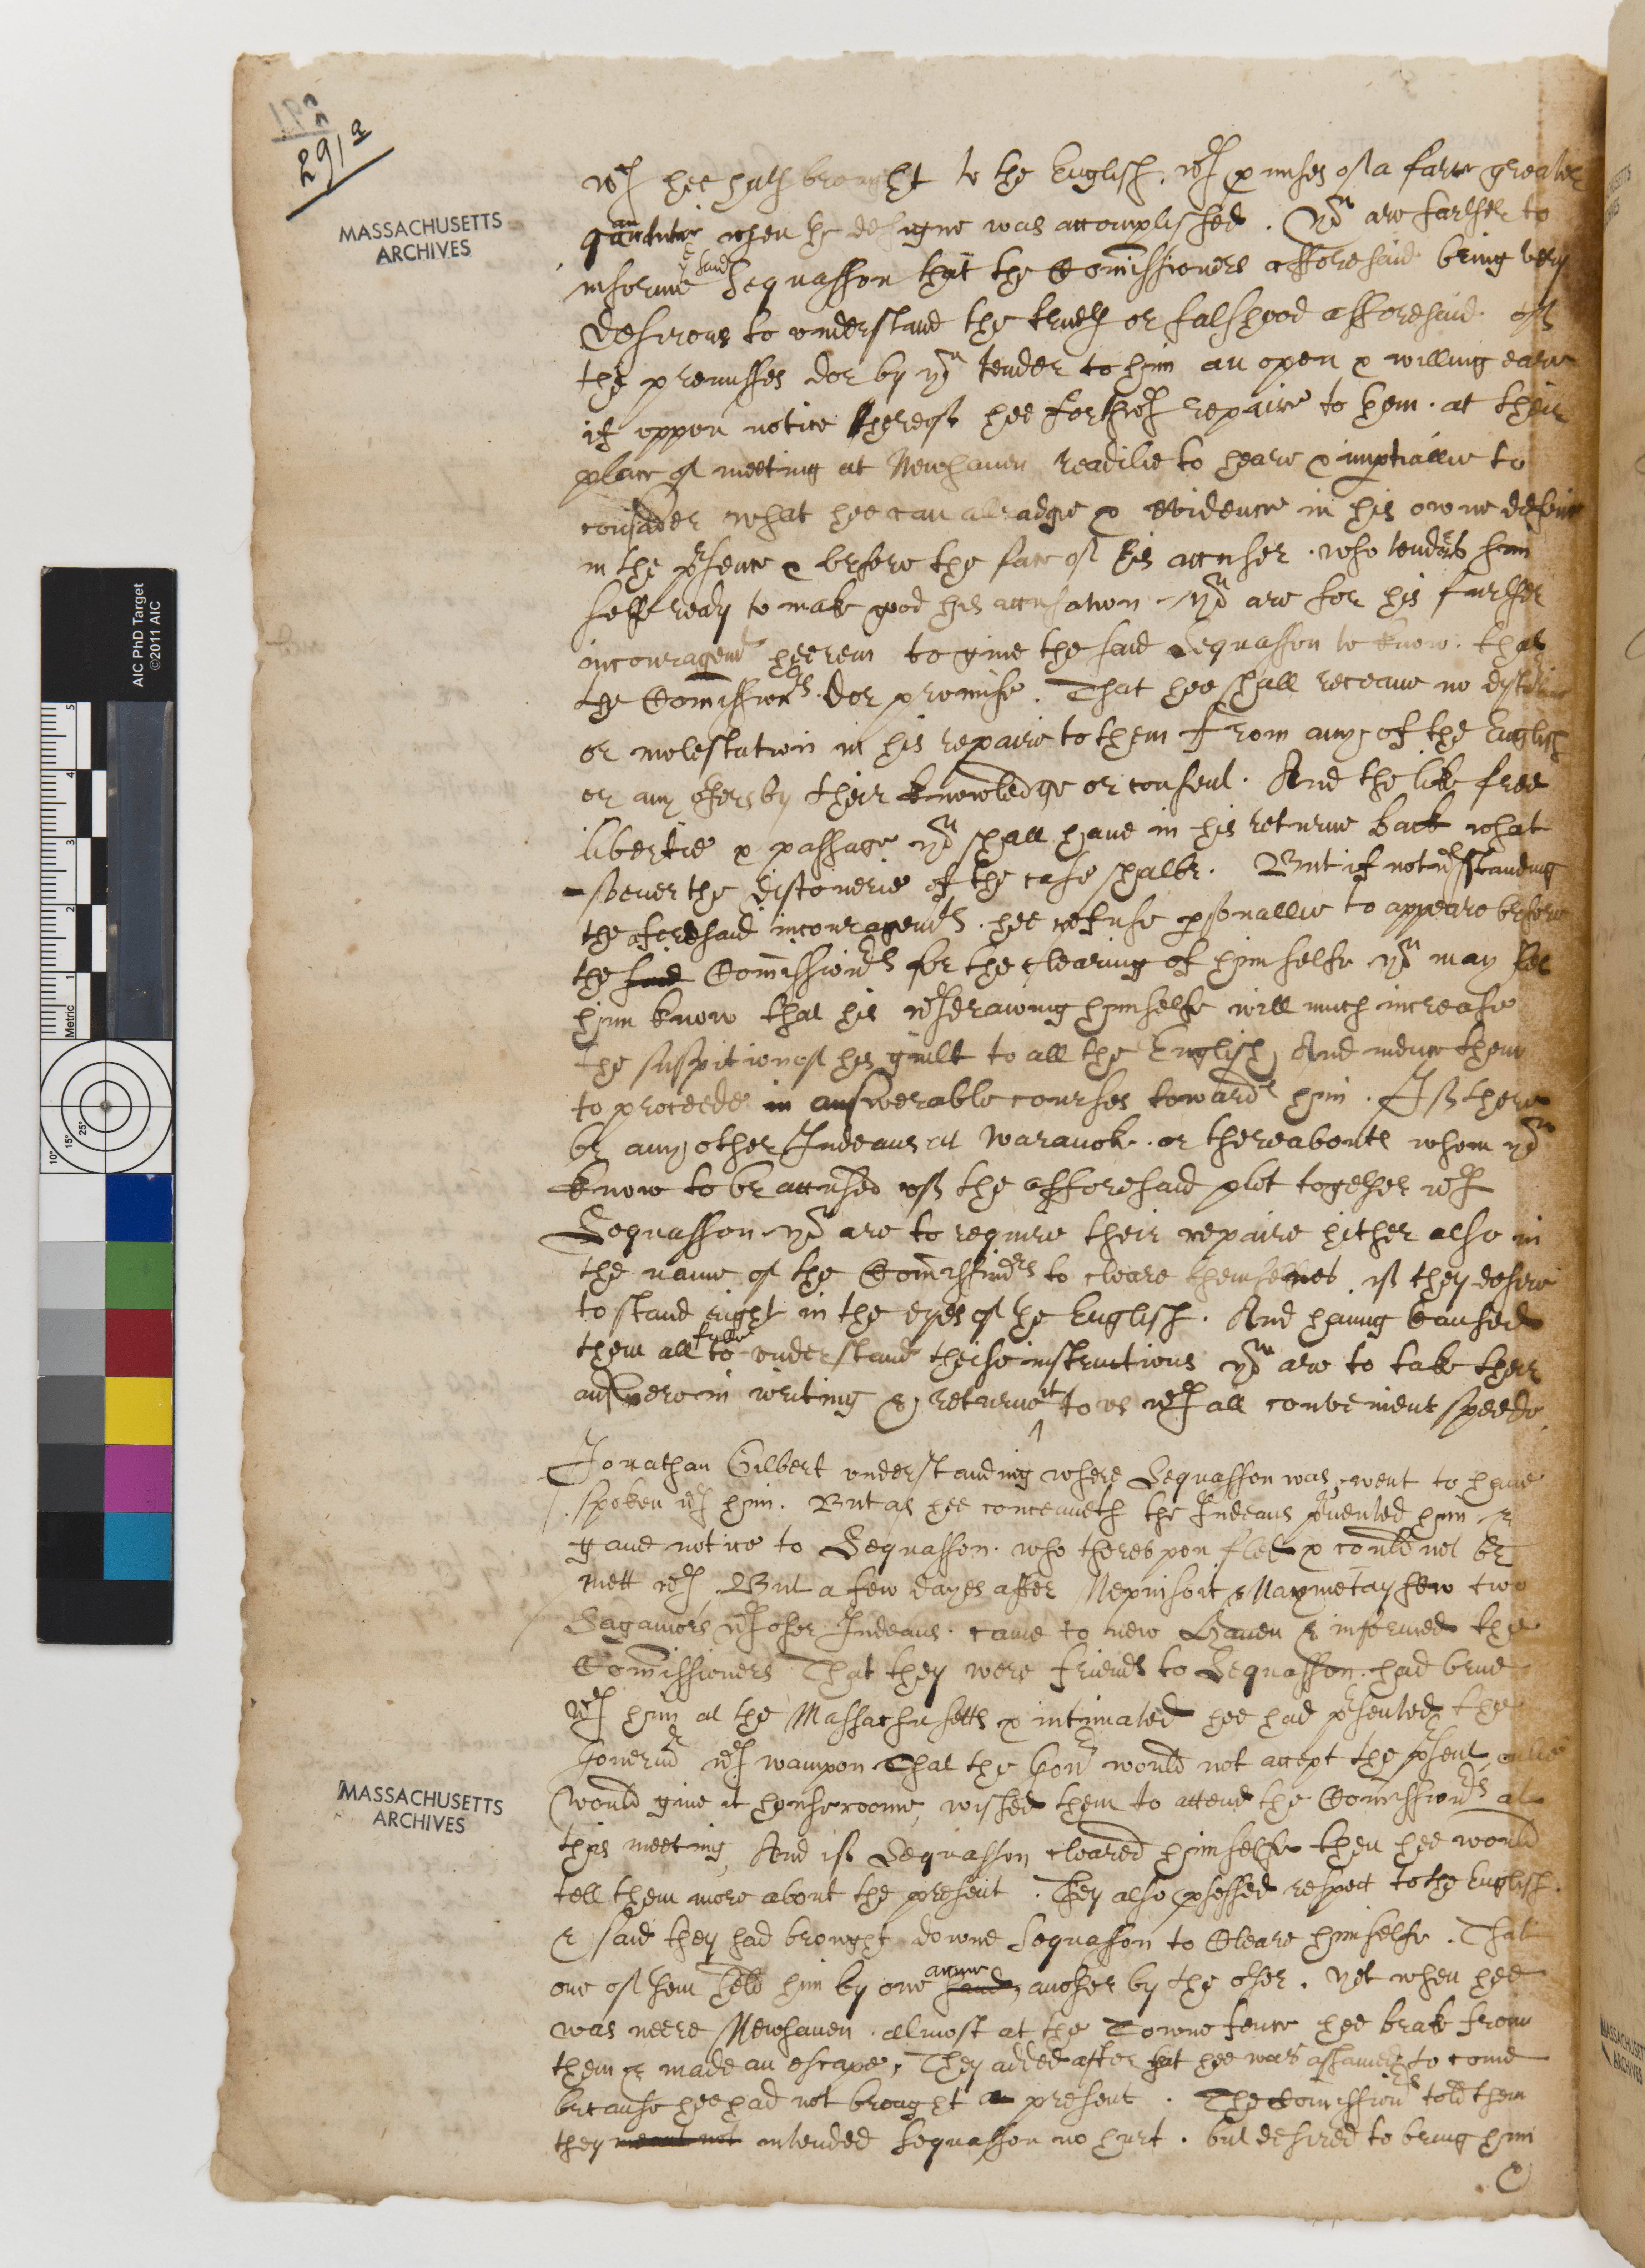 291a
MASSACHUSETTS
ARCHIVES
wch hee hath brought to the English, wch p mises of a farre greater
quantitie when he designe was accomplished. You are farther to
informe ye said Sequasson that the Comissioners afforesaid being very
desirous to understand the trueth or falshood afforesaid of
the premisses doe by you tender to him an open & willing eare
if uppon notice thereof hee forthwth repaire to them at their
place of meeting at Newhaven readilie to heare & imptiallie to
consider what hee can alleadge & evidence in his owne defence
in the prsence & before the face of his accuser who tenders him
selfe ready to make good his accusation. You are for his further
incouragemt heerein to give the said Sequasson to know that
the Comissionrs doe promise. That hee shall receave no
or molestation in his repaire to them from any of the English
or any others by their knowledge or consent. And the like free
libertie & passage you shall have in his returne back what
-soever the discoverie of the case shalbe. But if notwthstanding
the aforesaid incouragemts hee refuse psonallie to appeare before
the said Comissionrs for the clearing of himselfe you may let
him know that his wthdrawing himselfe will much increase
the suspition of his guilt to all the English, And induce them
to proceede in answerable courses towards him. If there
be any other Indeans at Waranok or thereabouts whom you
know to be accused of the afforesaid plot together wth
Sequasson you are to require their repaire hither also in
the name of the Comissionrs to cleare themselves if they desire
to stand right in the eyes of the English. And having caused
them all fullie to understand theise instructions you are to take their
answere in writing & returne it to us wth all convenient speede
Jonathan Gilbert understanding where Sequasson was, went to have
spoken wth him. But as hee conceaveth the Indeans prvented him &
gave notice to Sequasson who thereupon fled & could not be
mett wth. But a few dayes after Nepinsoit & Naymetayhew two
Sagamors wth other Indeans came to new Haven & informed the
Comissioners That they were friends to Sequasson had bene
wth him at the Massachusetts & intimated hee had prsented the
Governr wth wampon That the Govr would not accept the prsent onlie
would give it houseroome, wished them to attend the Comissionrs at
this meeting, And if Sequasson cleared himselfe then hee would
tell them more about the present. They also pfessed respect to the English
& said they had brought downe Sequasson to Cleare himselfe. That
one of them held him by one hand arme another by the other. Yet when hee
was neere Newhaven almost at the Towne fence hee brake from
them & made an escape, They added after that hee was ashamed to come
because hee had not brought a present. The Comissionrs told them
they meant not intended Sequasson no hurt. but desired to bring him
&
MASSACHUSETTS
ARCHIVES
AIC PhD Target
©2011 AIC
5
4
3
2
1
Metric
10°
15°
25°